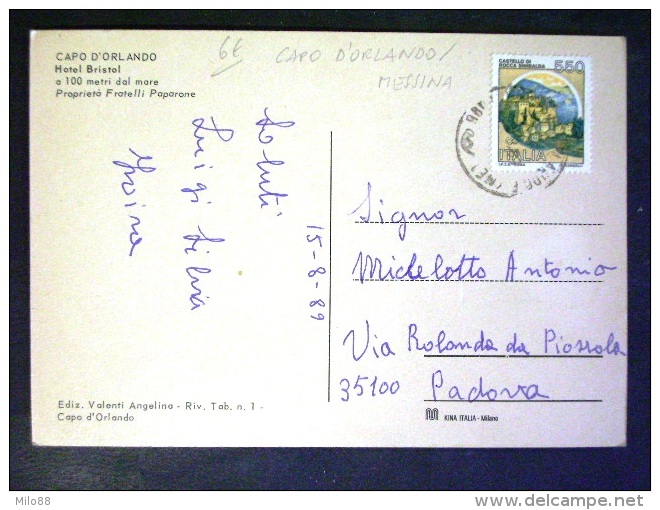 CAPO D'ORLANDO
Hotel Bristol
a 100 metri dal mare
Proprietà Fratelli Paparone
6€ CAPO D'ORLANDO/
MESSINA
CASTELLO DI
ROCCA SINIBALDA
550
ITALIA
Saluti
Luigi Silvia
15-8-89
Signor
Michelotto Antonio
Via Rolando da Piazzola
35100 Padova
Ediz. Valenti Angelina - Riv. Tab. n. 1 -
Capo d'Orlando
KINA ITALIA - Milano
Milo88
www.delcampe.net